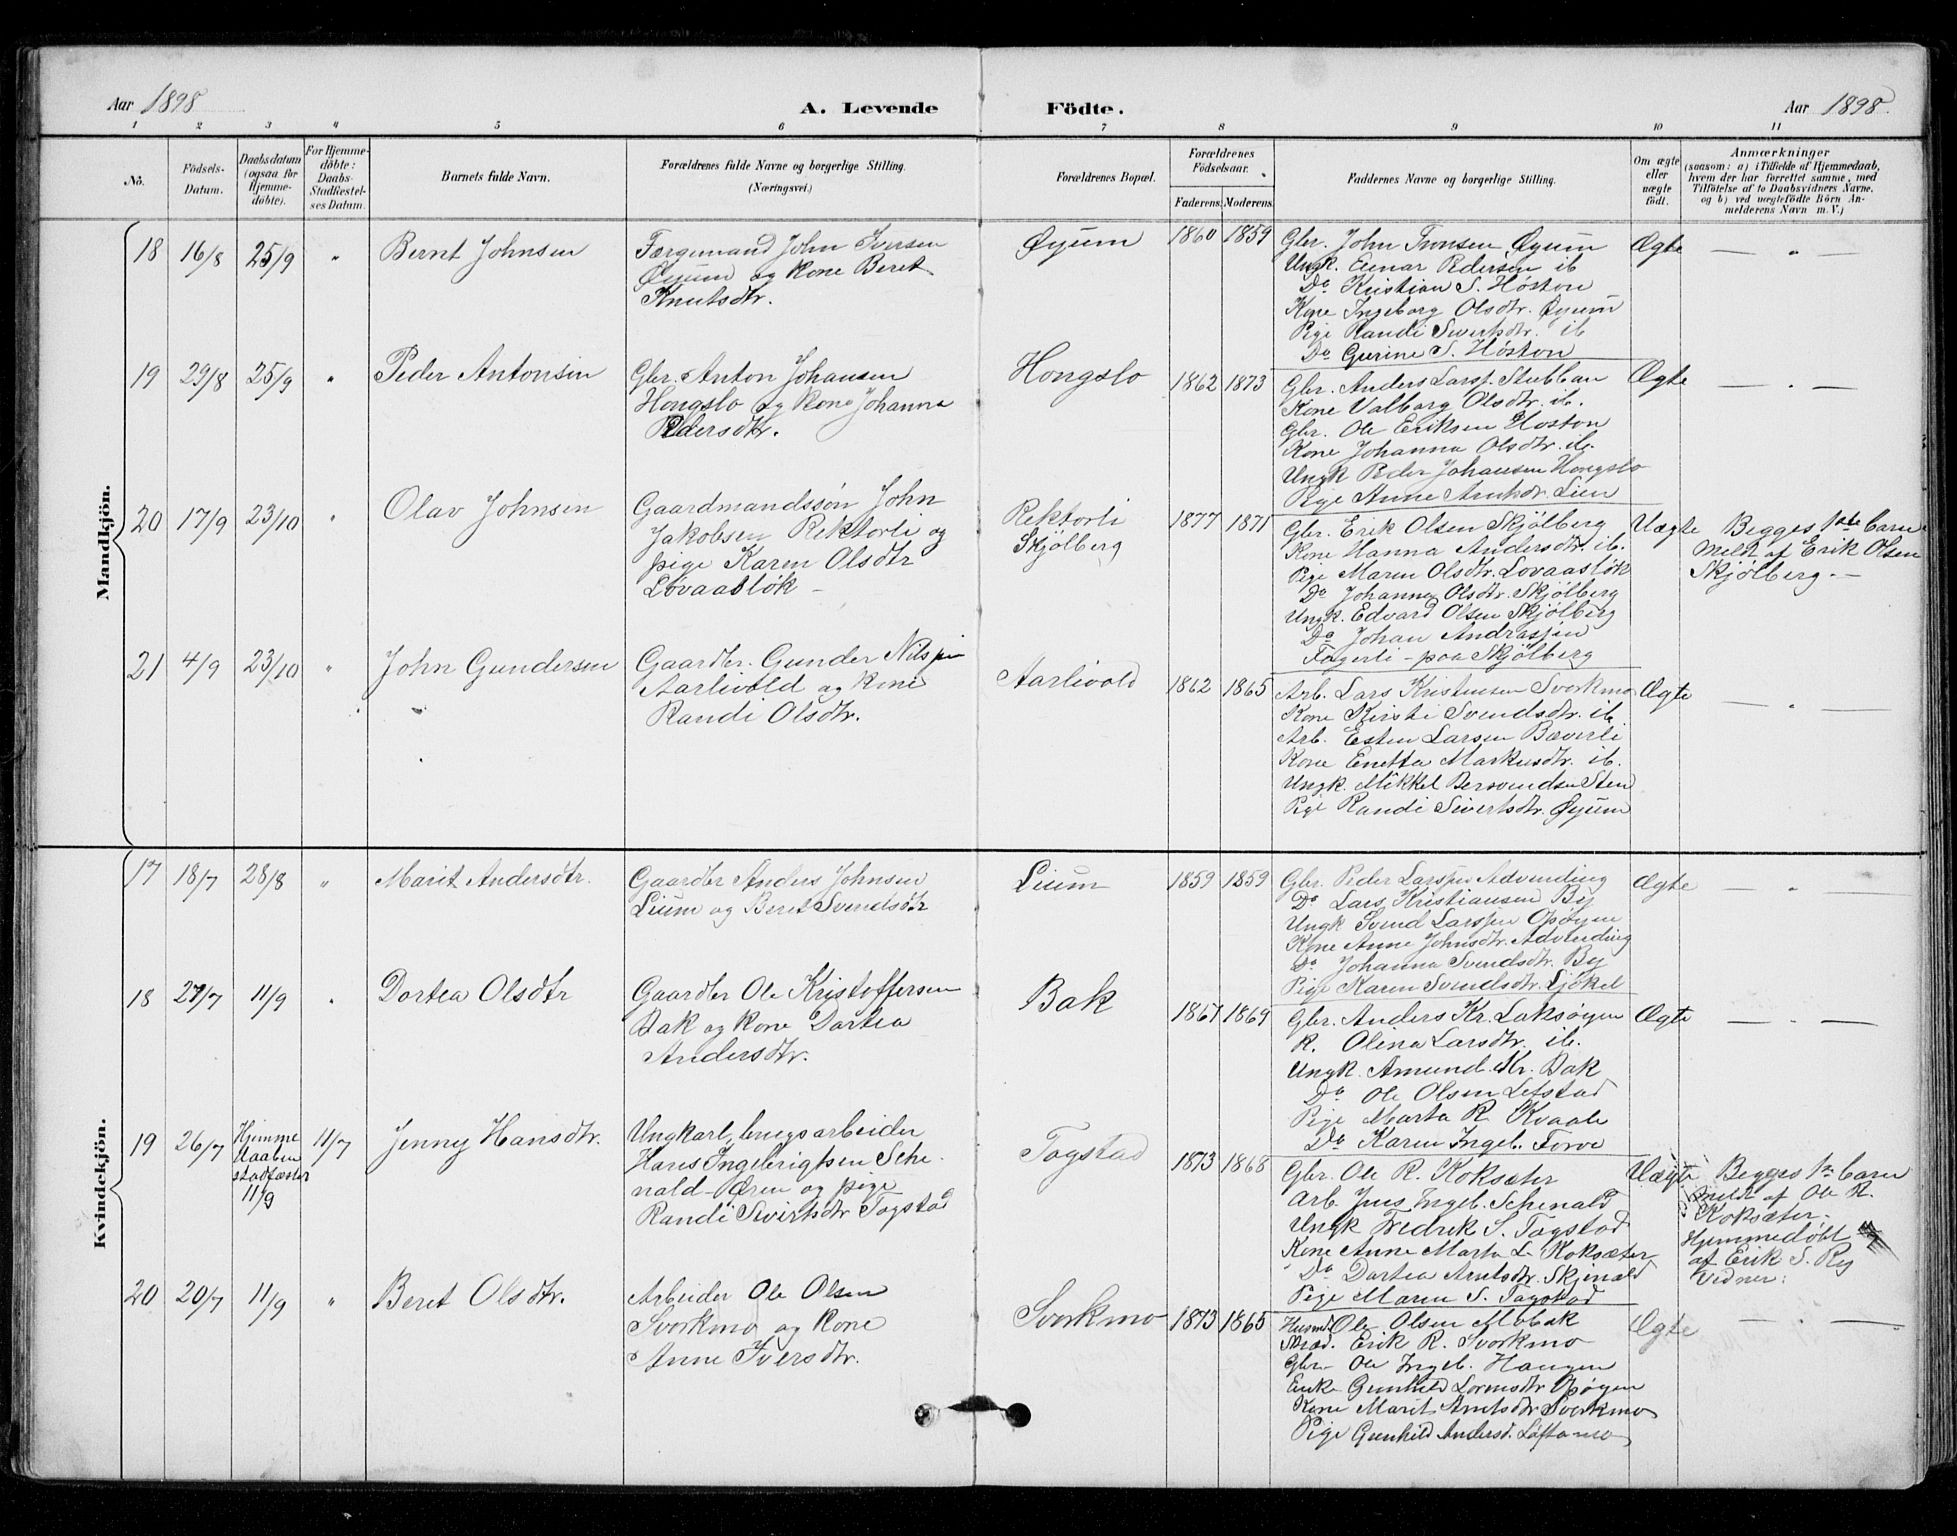 Aar 1898 A. Levende Födte. Aar 1898.
1 2 3 4 5 6 7 8 9 10 11
No.
Födsels-
Datum.
Daabsdatum
(ogsaa for
Hjemme-
döbte).
For Hjemme-
döbte:
Daabs-
Stadfæstel-
ses Datum.
Barnets fulde Navn.
Forældrenes fulde Navne og borgerlige Stilling.
(Næringsvei.)
Forældrenes Bopæl.
Forældrenes
Födselsaar.
Faderens. Moderens.
Faddernes Navne og borgerlige Stilling.
Om ægte
eller
uægte
födt.
Anmærkninger
(saasom: a) i Tilfælde af Hjemmedaab,
hvem der har forrettet samme, med
Tilföielse af to Daabsvidners Navne,
og b) ved uægtefödte Börn An-
melderens Navn m. V.)
Mandkjön.
18 16/8 25/9 " Bernt Johnsen
Færgemand John Iversen
Øyum og Kone Beret
Knutsdtr.
Øyum 1860 1859
Gbr. John Tronsen Øyum
Ungk. Einar Pedersen ib
Do Kristian S. Høston
Kone Ingeborg Olsdtr. Øyum
Pige Randi Sivertsdtr. ib
Do Gurine S. Høston
Ægte — " —
19 29/8 25/9 " Peder Antonsen
Gbr. Anton Johansen
Hongslo og Kone Johanna
Pedersdtr.
Hongslo 1862 1873
Gbr. Anders Larss. Stubban
Kone Valborg Olsdtr. ib.
Gbr. Ole Eriksen Høston
Kone Johanna Olsdtr. ib.
Ungk Peder Johansen Hongslo
Pige Anne Arntsdr. Lien
Ægte — " —
20 17/9 23/10 " Olav Johnsen
Gaardmandssøn John
Jakobsen Rektorli og
pige Karen Olsdtr
Lovaasløk —
Rektorli
Skjølberg
1877 1871
Gbr. Erik Olsen Skjølberg
Kone Hanna Andersdtr. ib.
Pige Maren Olsdtr. Lovaasløk
Do Johanna Olsdtr. Skjølberg
Ungk. Edvard Olsen Skjølberg
Do Johan Andrassen
Fagerli - paa Skjølberg
Uægte
Begges 1ste barn
Meldt af Erik Olsen
Skjølberg. —
21 4/9 23/10 " John Gundersen
Gaardbr. Gunder Nilssen
Aarlivold og kone
Randi Olsdtr.
Aarlivold 1862 1865
Arb. Lars Kristensen Svorkmo
Kone Kirsti Svendsdtr. ib.
Arb. Esten Larsen Bæverli
Kone Enetta Markusdtr. ib.
Ungk. Mikkel Bersvendsen Sten
Pige Randi Sivertsdtr. Øyum
Ægte — " —
Kvindekjön.
17 18/7 28/8 " Marit Andersdtr.
Gaardbr Anders Johnsen
Lium og Beret Svendsdtr
Lium 1859 1859
Gbr. Peder Larssen Advending
Do Lars Kristiansen By
Ungk Svend Larssen Opøyen
Kone Anne Johnsdtr. Advending
Do Johanna Svendsdtr. By
Pige Karen Svendsdtr. Ljøkel
Ægte — " —
18 27/7 11/9 " Dortea Olsdtr
Gaardbr Ole Kristoffersen
Bak og kone Dortea
Andersdtr.
Bak 1867 1869
Gbr. Anders Kr. Laksøyen
K. Olina Larsdtr. ib.
Ungk. Amund Kr. Bak
Do Ole Olsen Lefstad
Pige Marta R. Kvaale
Do Karen Ingeb. Forve
Ægte — " —
19 26/7
Hjemme
daaben
stadfæstet
11/9
11/7 Jenny Hansdtr.
Ungkarl, brugsarbeider
Hans Ingebrigtsen Ske-
nald-Øren og pige
Randi Sivertsdtr Togstad
Togstad 1873 1868
Gbr. Ole R. Koksæter
Arb. Jens Ingeb. Schenald
Ungk Fredrik S. Togstad
Kone Anne Marta L. Koksæter
Do Dortea Arntsdtr. Skjenald
Pige Maren S. Togstad
Uægte
Begges 1ste barn
meldt af Ole R.
Koksæter.
Hjemmedøbt
af Erik S. Ry
Vidner:
20 20/7 11/9 " Beret Olsdtr.
Arbeider Ole Olsen
Svorkmo og kone
Anne Iversdtr.
Svorkmo 1873 1865
Husmd. Ole Olsen Mobak
Erik R. Svorkmo
Gbr. Ole Ingeb. Haugen
Enke Gunhild Lorensdtr Opøyen
Kone Marit Arntsdtr Svorkmo
Pige Gunhild Andersd. Løftamo
Ægte — " —